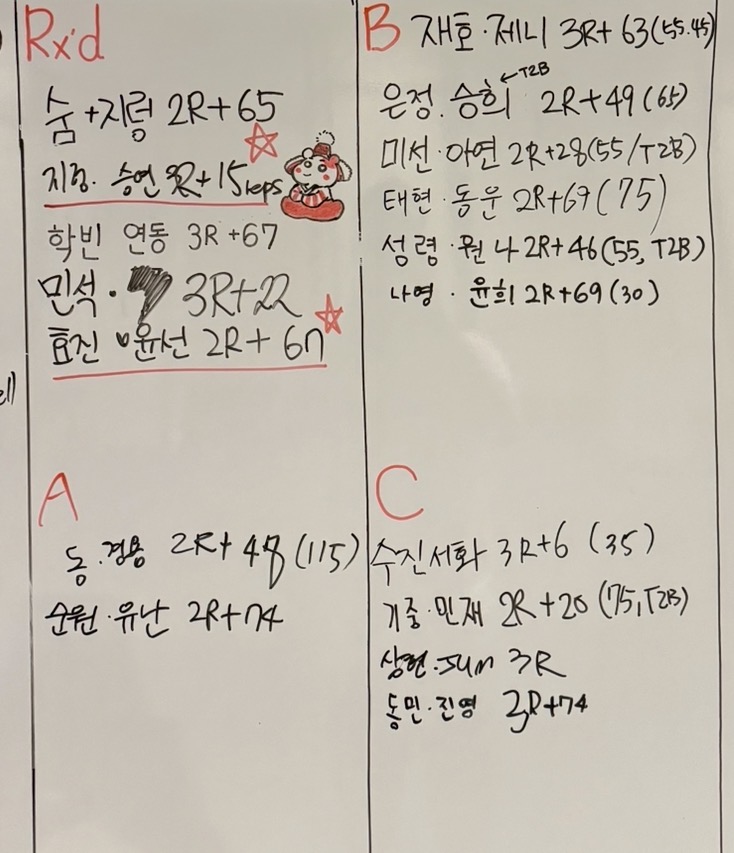 Rx'd
숨+지렁 2R+65
승연 R+15reps
학빈 연동 3R+67
민석· 3R+22
효진 윤선 2R+67
B 재호·제니 3R+63(55.45)
←T2B
은정.승희 2R+49(65)
미선·아연 2R+28(55/T2B)
태현·동운 2R+69(75)
성령· 2R+46(55, T2B)
나영·윤희 2R+69(30)
A
동.경용 2R+48(115)
순원·유난 2R+74
C
수진서화 3R+6 (35)
기중·민재 2R+20(75,T2B)
상현·sun 3R
동민·진영 R+74